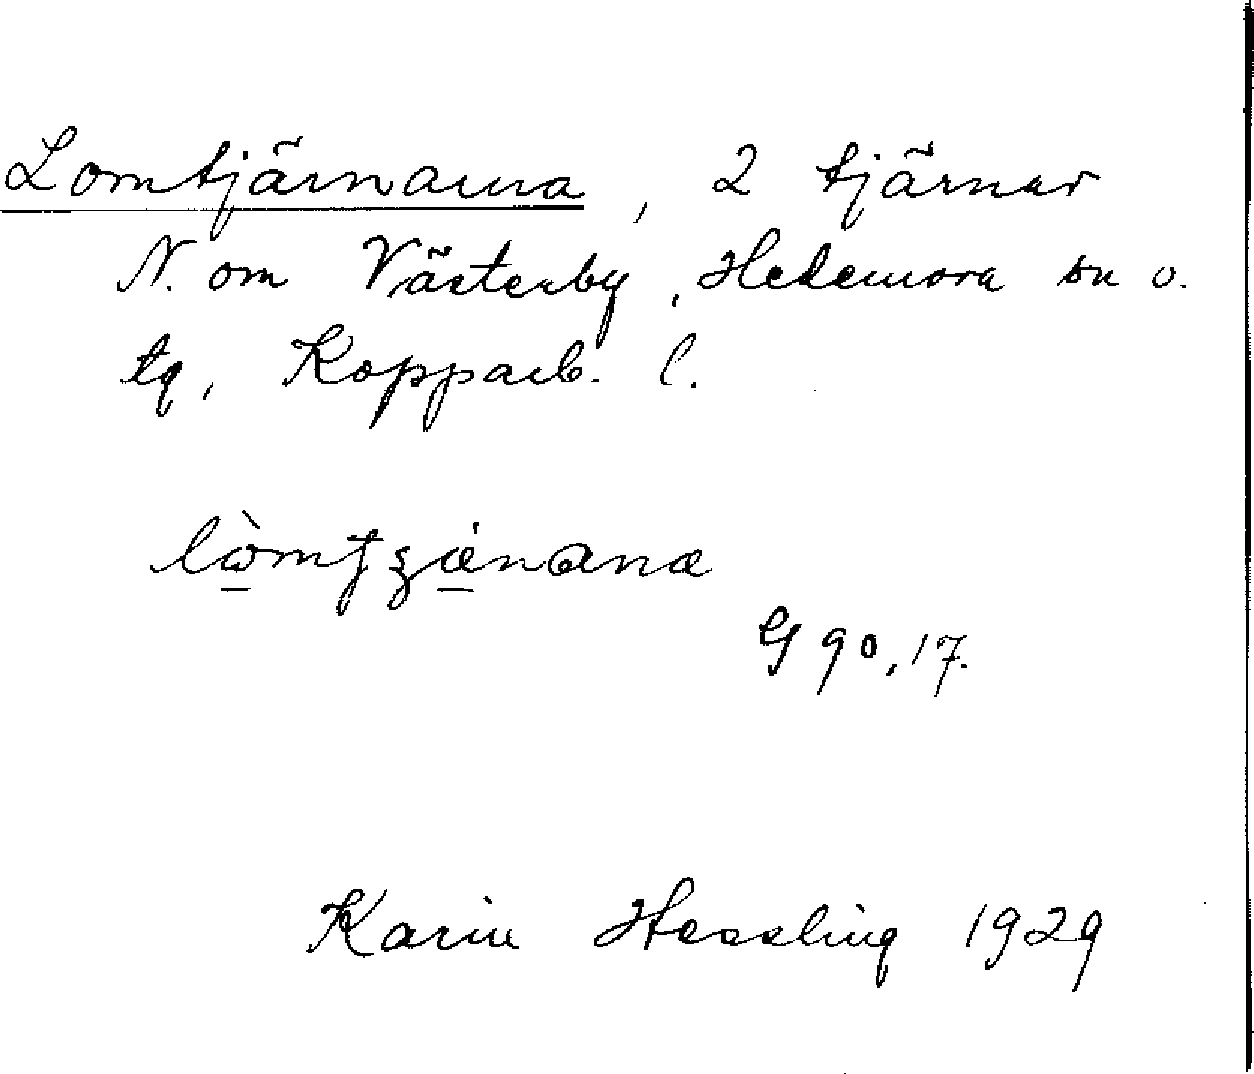 Lomtjärnarna, 2 tjärnar
N. om Västerby, Hedemora sn o.
tg, Kopparb. l.
G 90,17.
Karin Hessling 1929